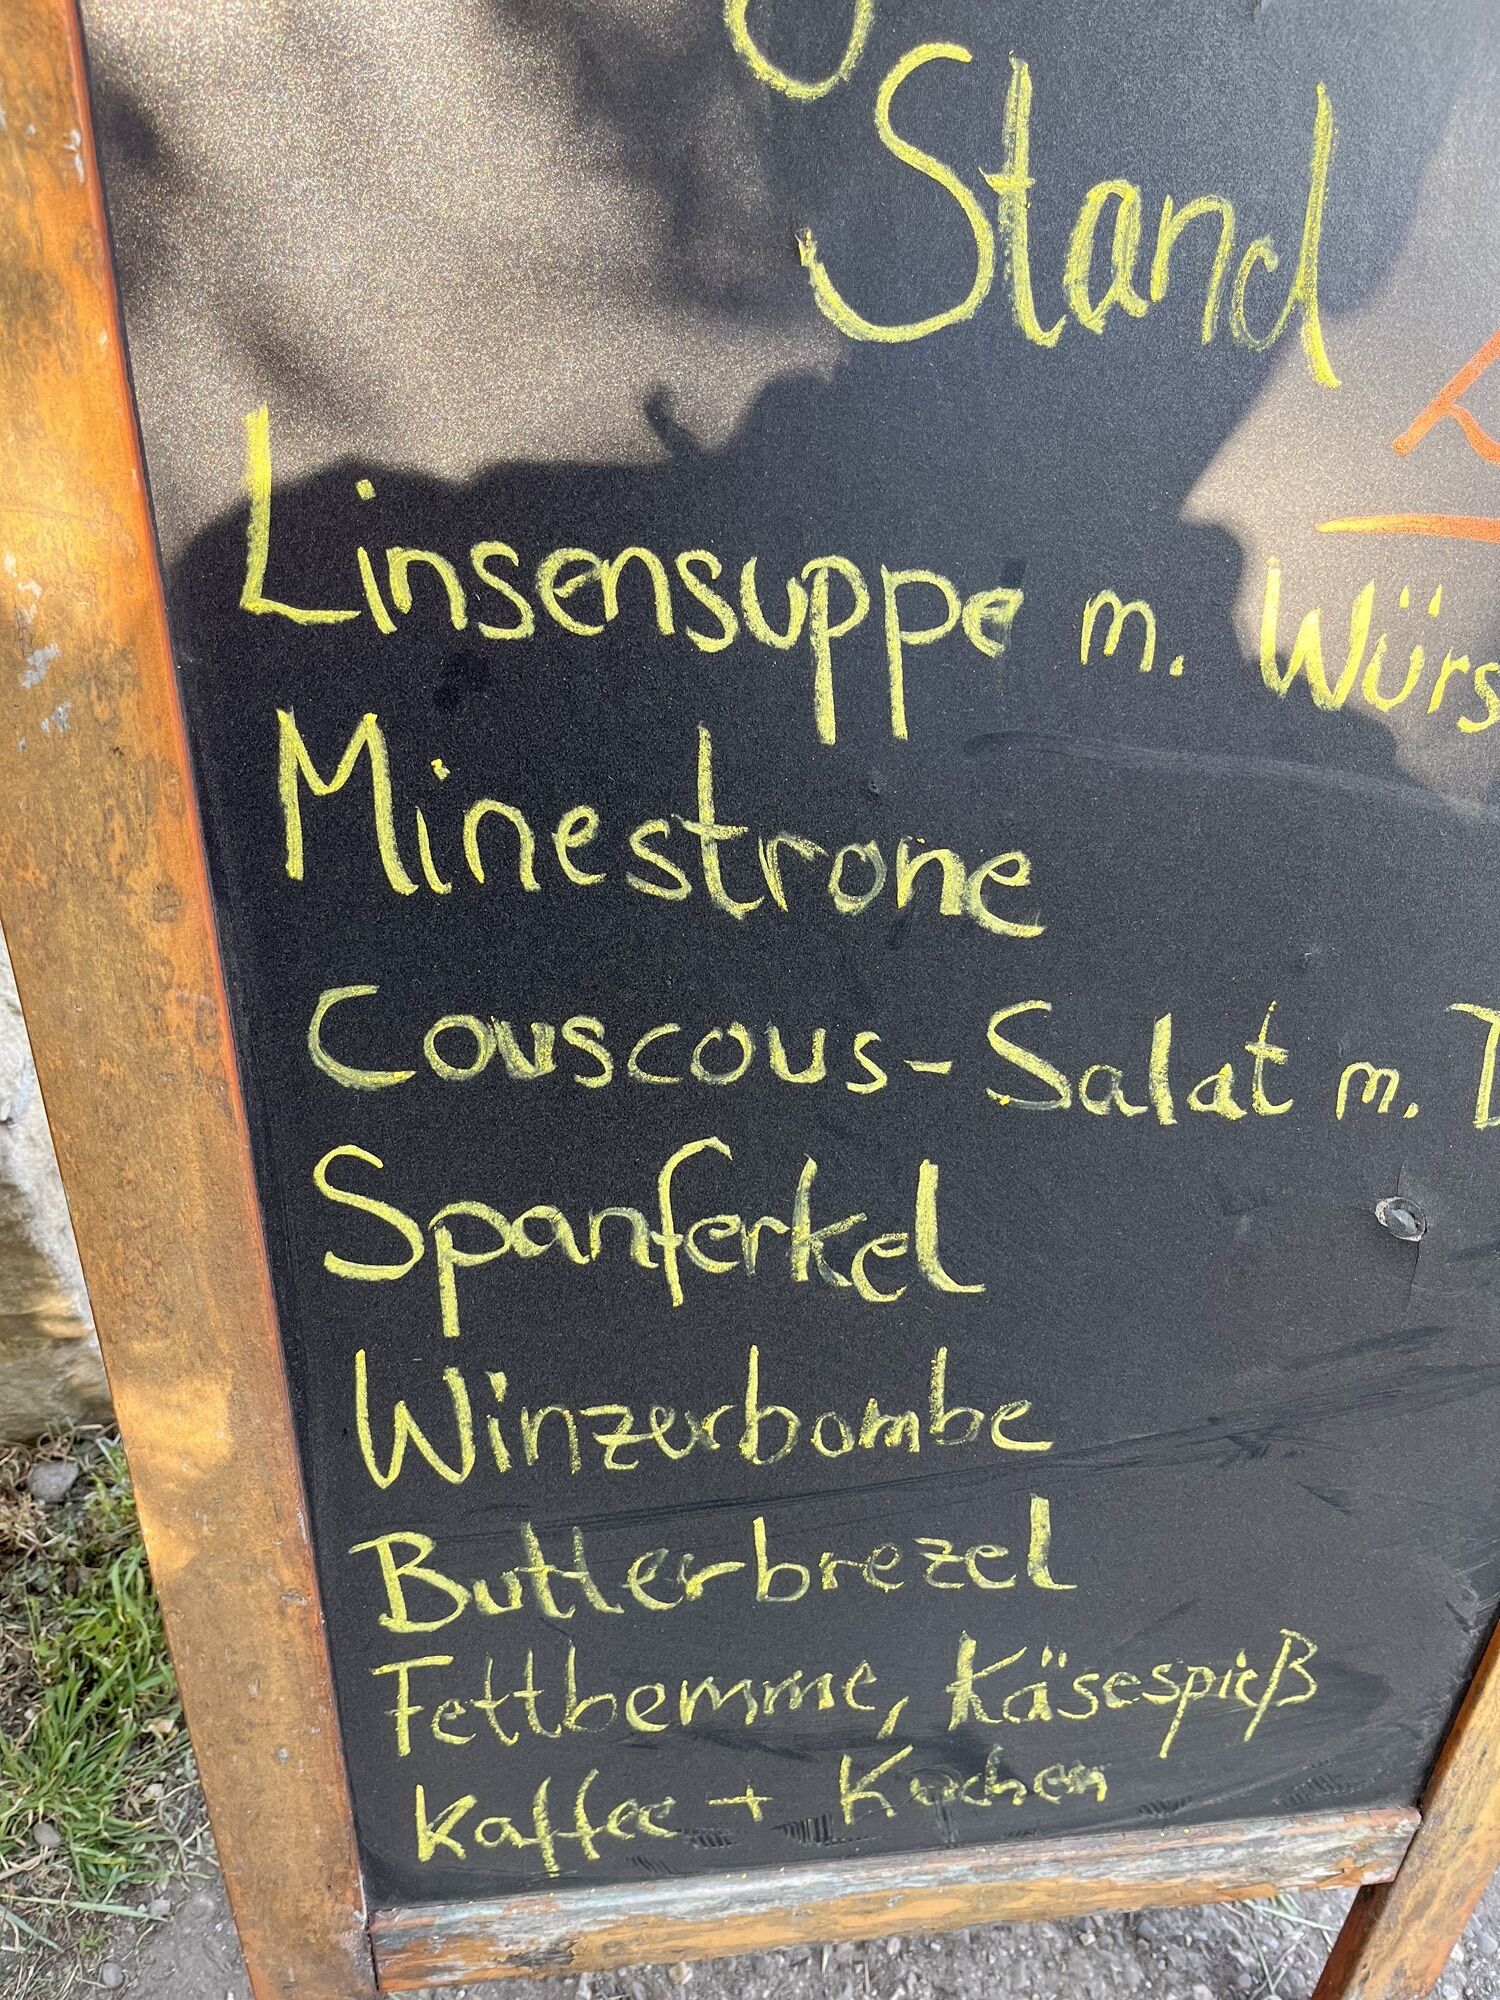 Stand
Linsensuppe m. Würs
Minestrone
Couscous-Salat m. D
Spanferkel
Winzerbombe
Butterbrezel
Fettbemme, Käsespieß
Kaffee + Kuchen